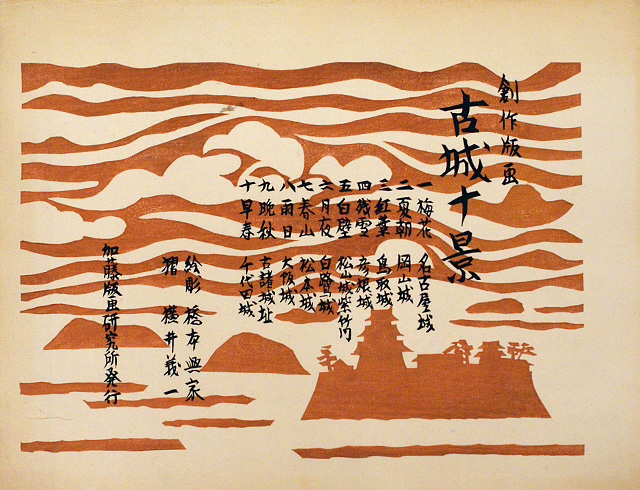 創作版画
古城十景
一 梅花 名古屋城
二 夏朝 岡山城
三 紅葉 鳥取城
四 残雪 彦根城
五 白壁 松山城紫竹門
六 月夜 白鷺城
七 春山 松本城
八 雨日 大阪城
九 晩秋 古諸城址
十 早春 千代田城
絵彫 橋本興家
摺 横井義一
加藤版画研究所発行